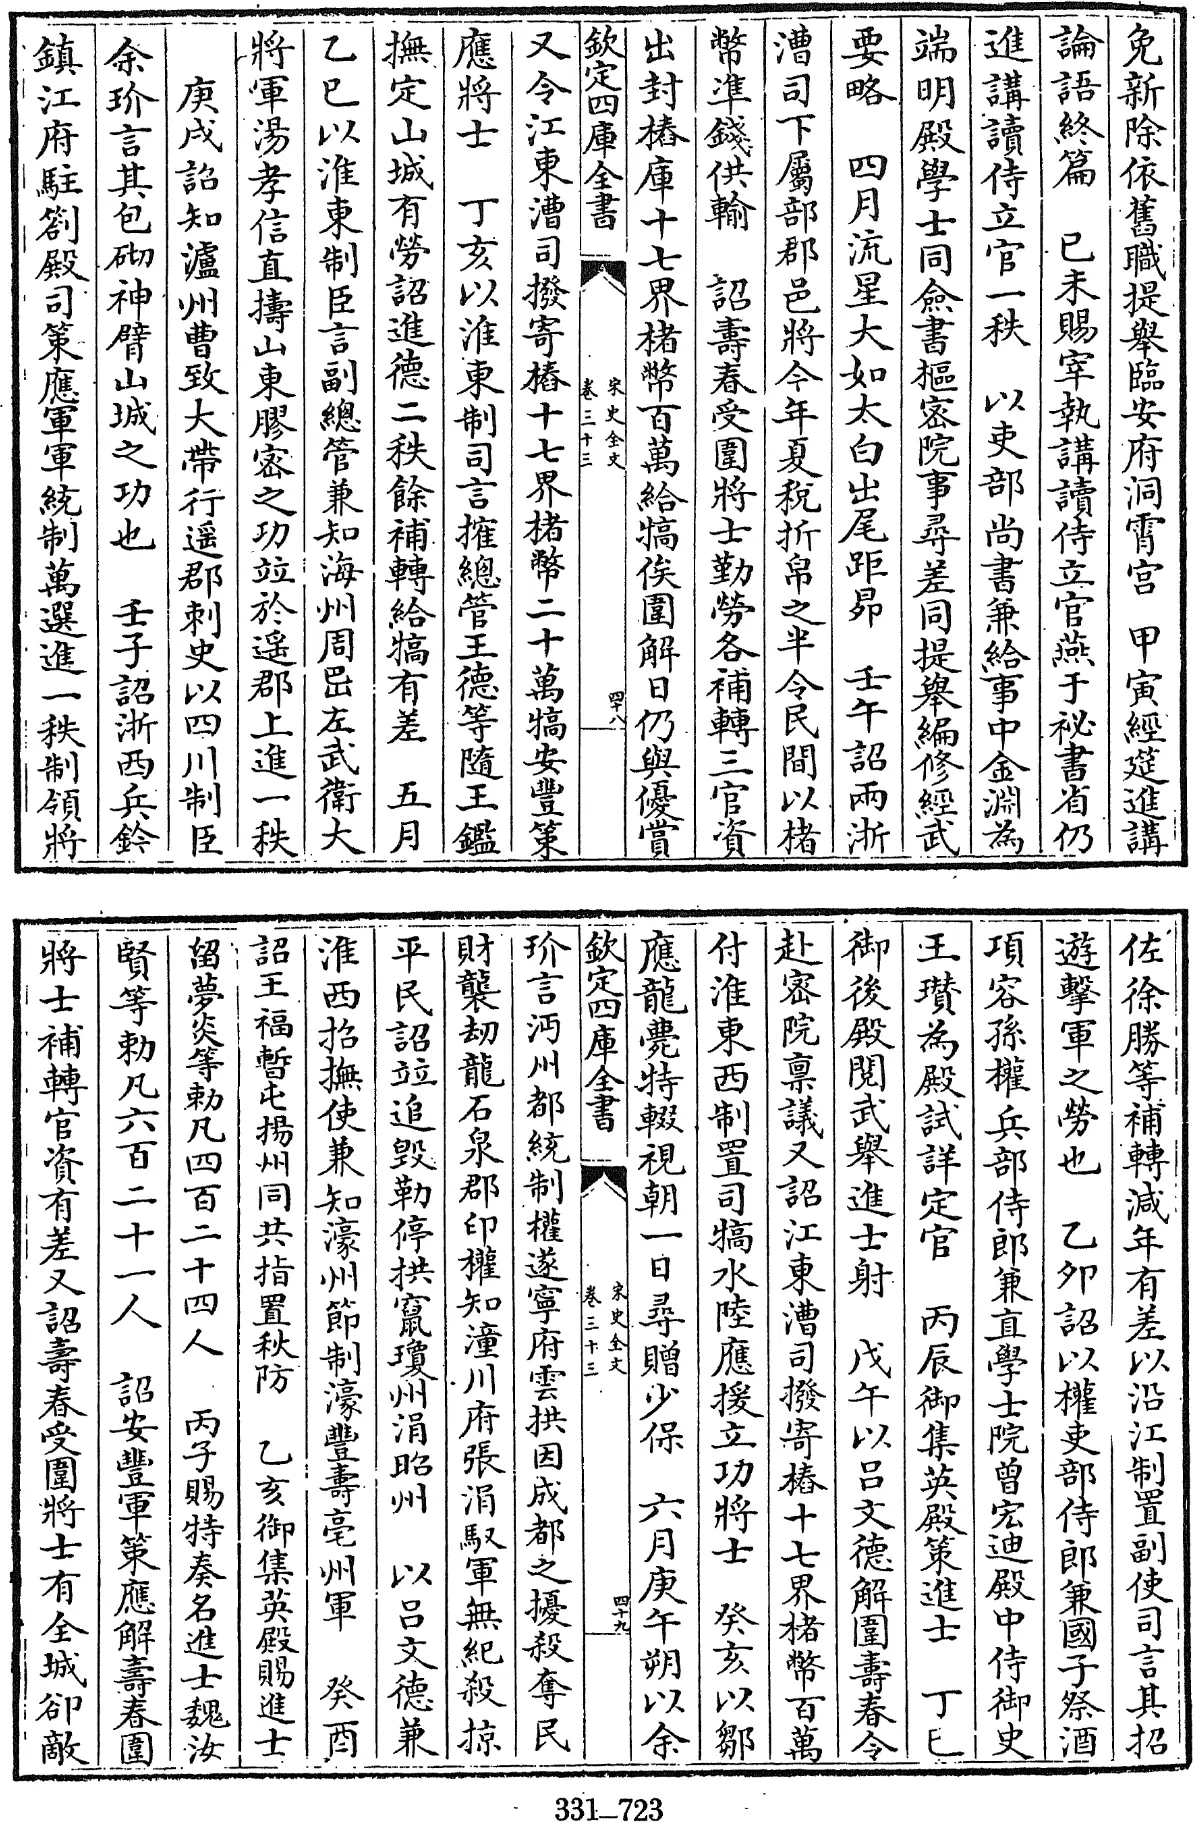 免新除依舊職提舉臨安府洞霄宫　甲寅經筵進講
論語終篇　已未賜宰執講讀侍立官燕于祕書省仍
進講讀侍立官一秩　以吏部尚書兼給事中金淵為
端明殿學士同僉書樞密院事尋差同提舉編修經武
要略　四月流星大如太白出尾距昴　壬午詔兩浙
漕司下屬部郡邑將今年夏稅折帛之半令民間以楮
幣準錢供輸　詔壽春受圍將士勤勞各補轉三官資
出封樁庫十七界楮幣百萬給犒俟圍解日仍與優賞
欽定四庫全書
宋史全文
卷三十三
四十八
又令江東漕司撥寄樁十七界楮幣二十萬犒安豐策
應將士　丁亥以淮東制司言摧總管王德等隨王鑑
撫定山城有勞詔進德二秩餘補轉給犒有差　五月
乙巳以淮東制臣言副總管兼知海州周岊左武衛大
將軍湯孝信直擣山東膠密之功竝於遥郡上進一秩
庚戌詔知瀘州曹致大帶行遥郡刺史以四川制臣
余玠言其包砌神臂山城之功也　壬子詔浙西兵鈐
鎮江府駐劄殿司策應軍軍統制萬選進一秩制領將
佐徐勝等補轉減年有差以沿江制置副使司言其招
遊擊軍之勞也　乙夘詔以權吏部侍郎兼國子祭酒
項容孫權兵部侍郎兼直學士院曾宏迪殿中侍御史
王瓚為殿試詳定官　丙辰御集英殿策進士　丁巳
御後殿閱武舉進士射　戊午以吕文德解圍壽春令
赴密院禀議又詔江東漕司撥寄樁十七界楮幣百萬
付淮東西制置司犒水陸應援立功將士　癸亥以鄒
應龍薨特輟視朝一日尋贈少保　六月庚午朔以余
欽定四庫全書
宋史全文
卷三十三
四十九
玠言沔州都統制權遂寧府雲拱因成都之擾殺奪民
財襲刼龍石泉郡印權知潼川府張涓馭軍無紀殺掠
平民詔竝追毁勒停拱竄瓊州涓昭州　以吕文德兼
淮西招撫使兼知濠州節制濠豐壽亳州軍　癸酉
詔王福暫屯揚州同共指置秋防　乙亥御集英殿賜進士
留夢炎等勅凡四百二十四人　丙子賜特奏名進士魏汝
賢等勅凡六百二十一人　詔安豐軍策應解壽春圍
將士補轉官資有差又詔壽春受圍將士有全城卻敵
331—723